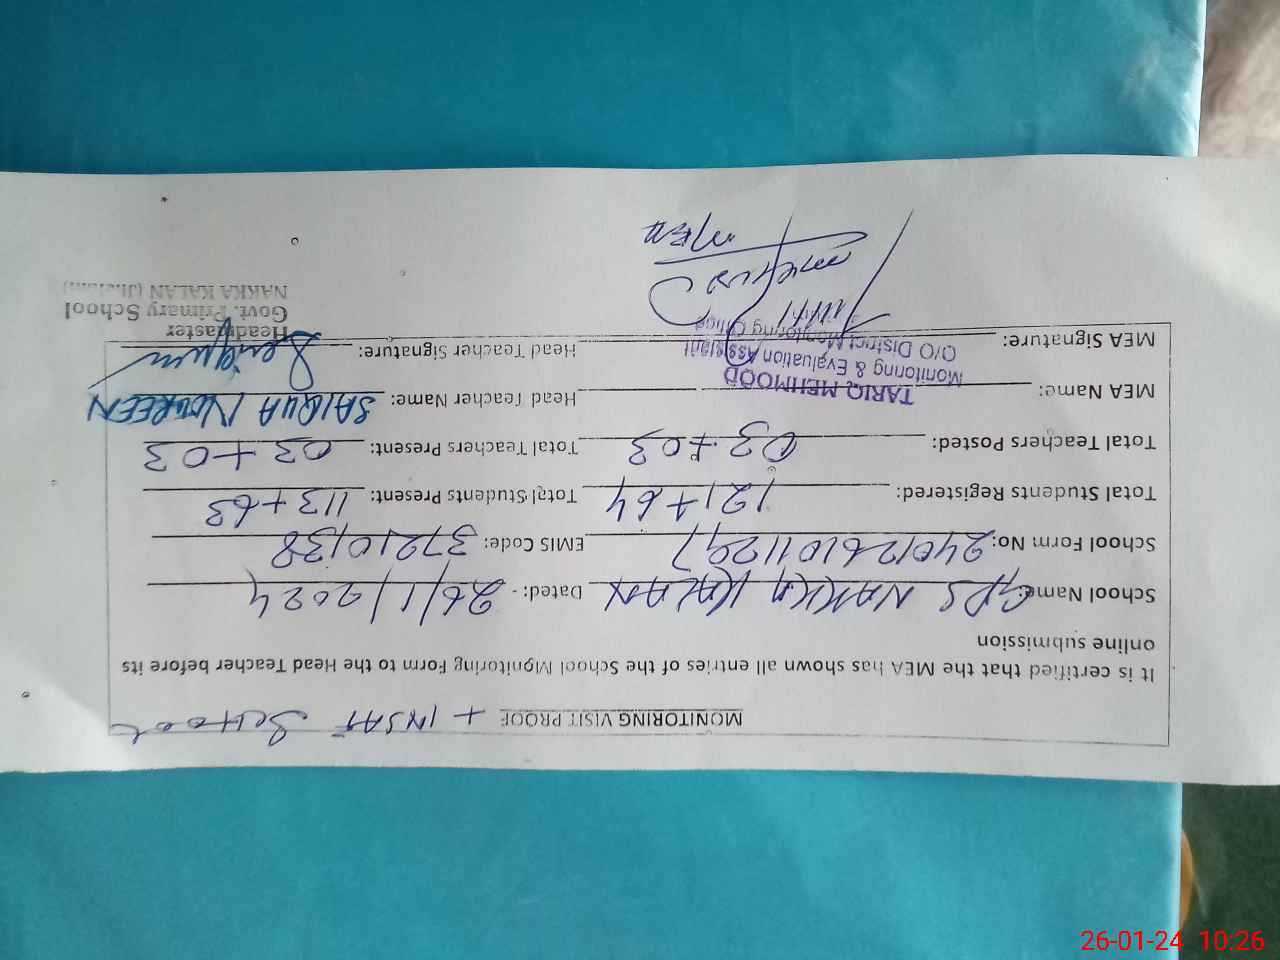 MONITORING VISIT PROOF + INSAF School
It is certified that the MEA has shown all entries of the School Monitoring Form to the Head Teacher before its
online submission
School Name: GPS NAKKA KALAN Dated: - 26/1/2024
School Form No: 2401261011297 EMIS Code: 37210138
Total Students Registered: 121+64 Total Students Present: 113+63
Total Teachers Posted: 03+03 Total Teachers Present: 03+03
MEA Name: TARIQ MEHMOOD Head Teacher Name: SAIQUA NOUREEN
Monitoring & Evaluation Assistant
O/O District Monitoring Office
MEA Signature: Head Teacher Signature:
Headmaster
Govt. Primary School
NAKKA KALAN (Jhelum)
MEA
26-01-24 10:26